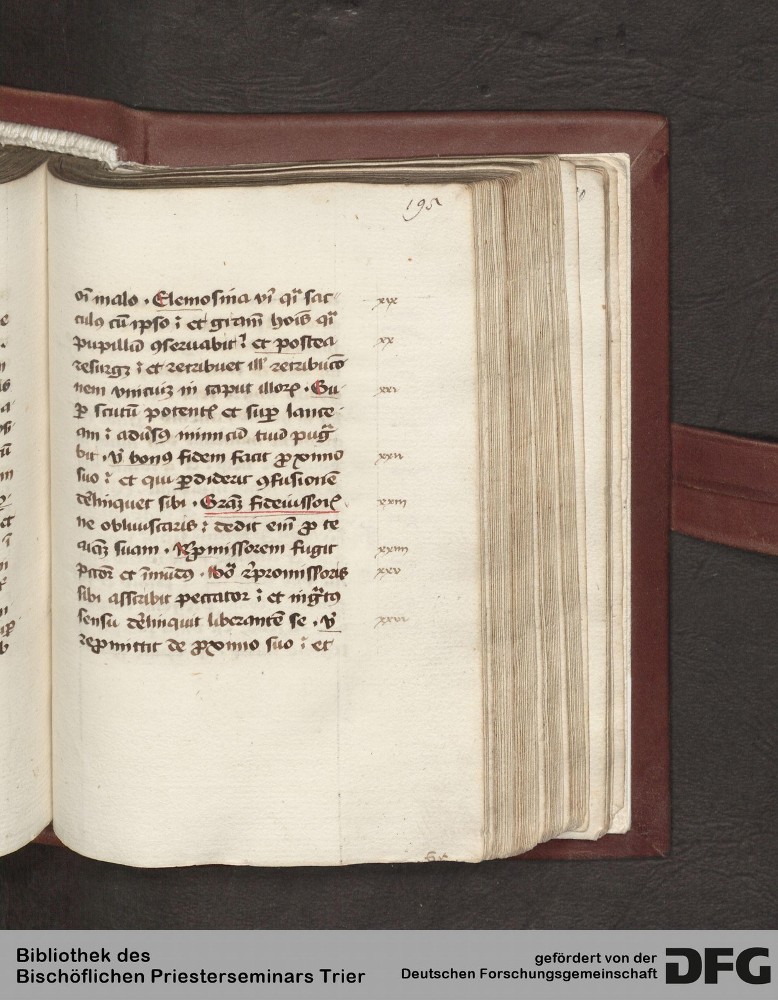 195
oī malo . Elemosina vi͛ qͣi sac
culꝯ cū ipso ⁊ et grām hoīs qͣi
pupillā ꝯseruabit ⁊ et postea
resurgꝫ ⁊ et retribuet ill' retribucō
nem vnicuiqꝫ in caput illoꝝ . Su
ꝑ scutū potentꝭ et suꝑ lance
am ⁊ adūsꝯ inimicū tuū pug̅
bit . vi͛ bonꝯ fidem facit ꝓximo
suo ⁊ et qui ꝑdiderit ꝯfusionē
dēlinquet sibi . Grāꝫ fideiussorꝭ
ne obliuiscaris ⁊ dedit eīm ꝓ te
aīaꝫ suam . Rꝓmissorem fugit
pctor et īmūdꝯ . Boͣ rꝓmissoris
sibi asscribit peccator ⁊ et ingr̄tꝯ
sensu dēlinquit liberantē se . vi͛
repmittit de ꝓximo suo ⁊ et
xix
xx
xxi
xxii
xxiii
xxiiii
xxv
xxvi
Bibliothek des
Bischöflichen Priesterseminars Trier
gefördert von der
Deutschen Forschungsgemeinschaft
DFG